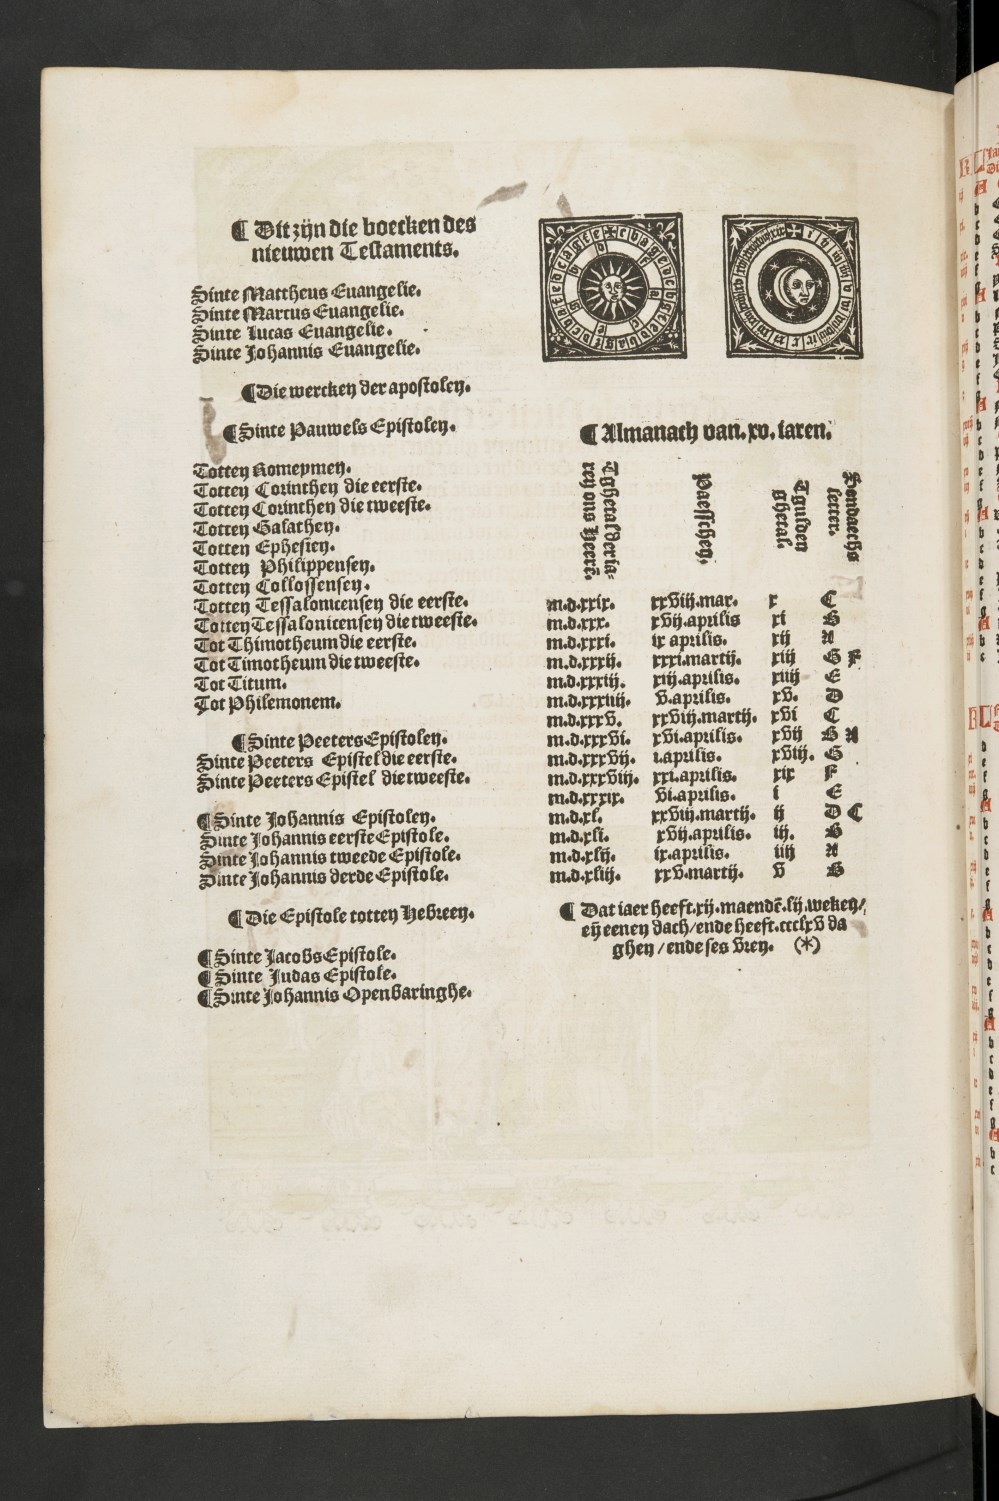 ¶ Dit zijn die boecken des
nieuwen Testaments.
Sinte Mattheus Euangelie.
Sinte Marcus Euangelie.
Sinte Lucas Euangelie.
Sinte Johannis Euangelie.
¶ Die wercken der apostolen.
¶ Sinte Pauwels Epistolen.
Totten Romeynen.
Totten Corinthen die eerste.
Totten Corinthen die tweeste.
Totten Galathen.
Totten Ephesien.
Totten Philippensen.
Totten Collossensen.
Totten Tessalonicensen die eerste.
Totten Tessalonicensen die tweeste.
Tot Thimotheum die eerste.
Tot Timotheum die tweeste.
Tot Titum.
Tot Philemonem.
¶ Sinte Peeters Epistolen.
Sinte Peeters Epistel die eerste.
Sinte Peeters Epistel die tweeste.
¶ Sinte Johannis Epistolen.
Sinte Johannis eerste Epistole.
Sinte Johannis tweede Epistole.
Sinte Johannis derde Epistole.
¶ Die Epistole totten Hebreen.
¶ Sinte Jacobs Epistole.
¶ Sinte Judas Epistole.
¶ Sinte Johannis Openbaringhe.
¶ Almanach van. xv. iaren.
Tghetal der ia-
ren ons Heerē.
Paesschen.
Tgulden
ghetal.
Sondaechs
letter.
m.d.xxix. xxviij.mar. x C
m.d.xxx. xvij.aprilis xi B
m.d.xxxi. ix aprilis. xij A
m.d.xxxij. xxxi.martij. xiij G F
m.d.xxxiij. xiij.aprilis. xiiij E
m.d.xxxiiij. v.aprilis. xv. D
m.d.xxxv. xxviij.martij. xvi C
m.d.xxxvi. xvi.aprilis. xvij B A
m.d.xxxvij. i.aprilis. xviij. G
m.d.xxxviij. xxi.aprilis. xix F
m.d.xxxix. vi.aprilis. i E
m.d.xl. xxviij.martij. ij D C
m.d.xli. xvij.aprilis. iij. B
m.d.xlij. ix.aprilis. iiij A
m.d.xliij. xxv.martij. v G
¶ Dat iaer heeft.xij.maendē.lij.weken/
eñ eenen dach/ende heeft.ccclxv da
ghen/ende ses vren. (*)